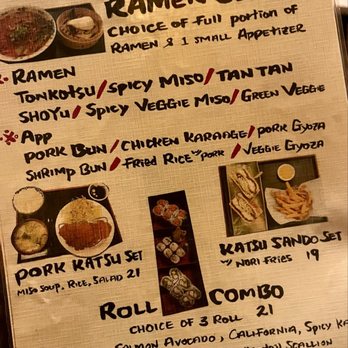 RAMEN
CHOICE OF FULL PORTION OF
RAMEN & 1 SMALL APPETIZER
※ RAMEN
TONKOTSU/SPICY MISO/TAN TAN
SHOYU/SPICY VEGGIE MISO/GREEN VEGGIE
※ APP
PORK BUN/CHICKEN KARAAGE/PORK GYOZA
SHRIMP BUN/FRIED RICE W/ PORK/VEGGIE GYOZA
KATSU SANDO SET
W/ NORI FRIES 19
PORK KATSU SET
MISO SOUP, RICE, SALAD 21
ROLL COMBO
CHOICE OF 3 ROLL 21
SALMON AVOCADO, CALIFORNIA, SPICY
SCALLION